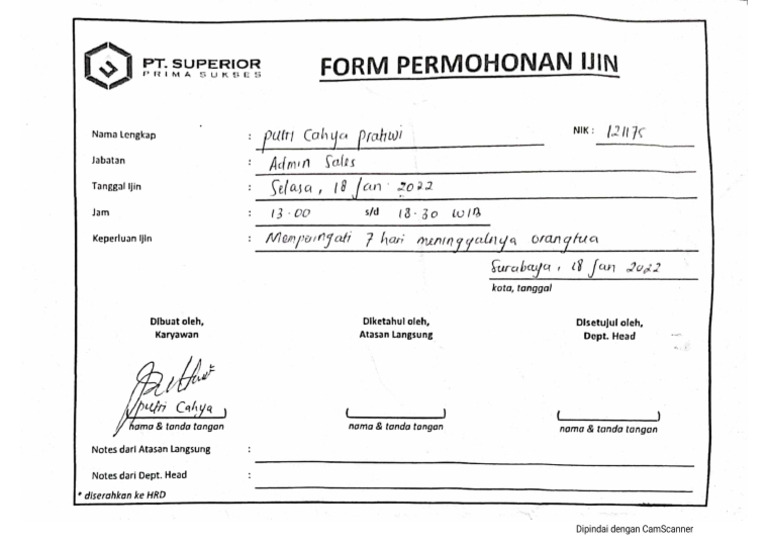 PT. SUPERIOR
PRIMA SUKSES
FORM PERMOHONAN IJIN
Nama Lengkap : Putri Cahya Pratiwi NIK : 121175
Jabatan : Admin Sales
Tanggal Ijin : Selasa, 18 Jan 2022
Jam : 13.00 s/d 18.30 WIB
Keperluan Ijin : Memperingati 7 hari meninggalnya orangtua
Surabaya, 18 Jan 2022
kota, tanggal
Dibuat oleh, Diketahui oleh, Disetujui oleh,
Karyawan Atasan Langsung Dept. Head
Putri Cahya
nama & tanda tangan nama & tanda tangan nama & tanda tangan
Notes dari Atasan Langsung :
Notes dari Dept. Head :
* diserahkan ke HRD
Dipindai dengan CamScanner